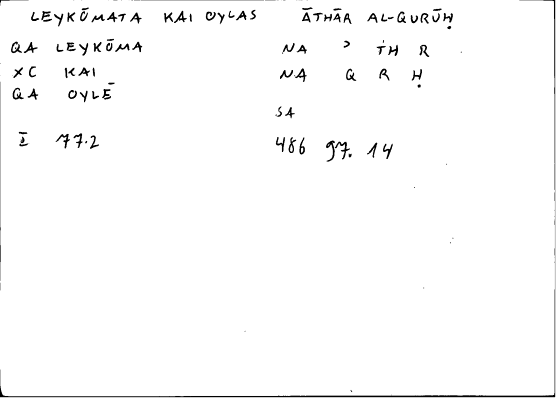 LEYKŌMATA KAI OYLAS ĀTHĀR AL-QURŪḤ
QA LEYKŌMA NA ʾ TH R
XC KAI NA Q R Ḥ
QA OYLĒ
SA
Ī 77.2 486 97. 14